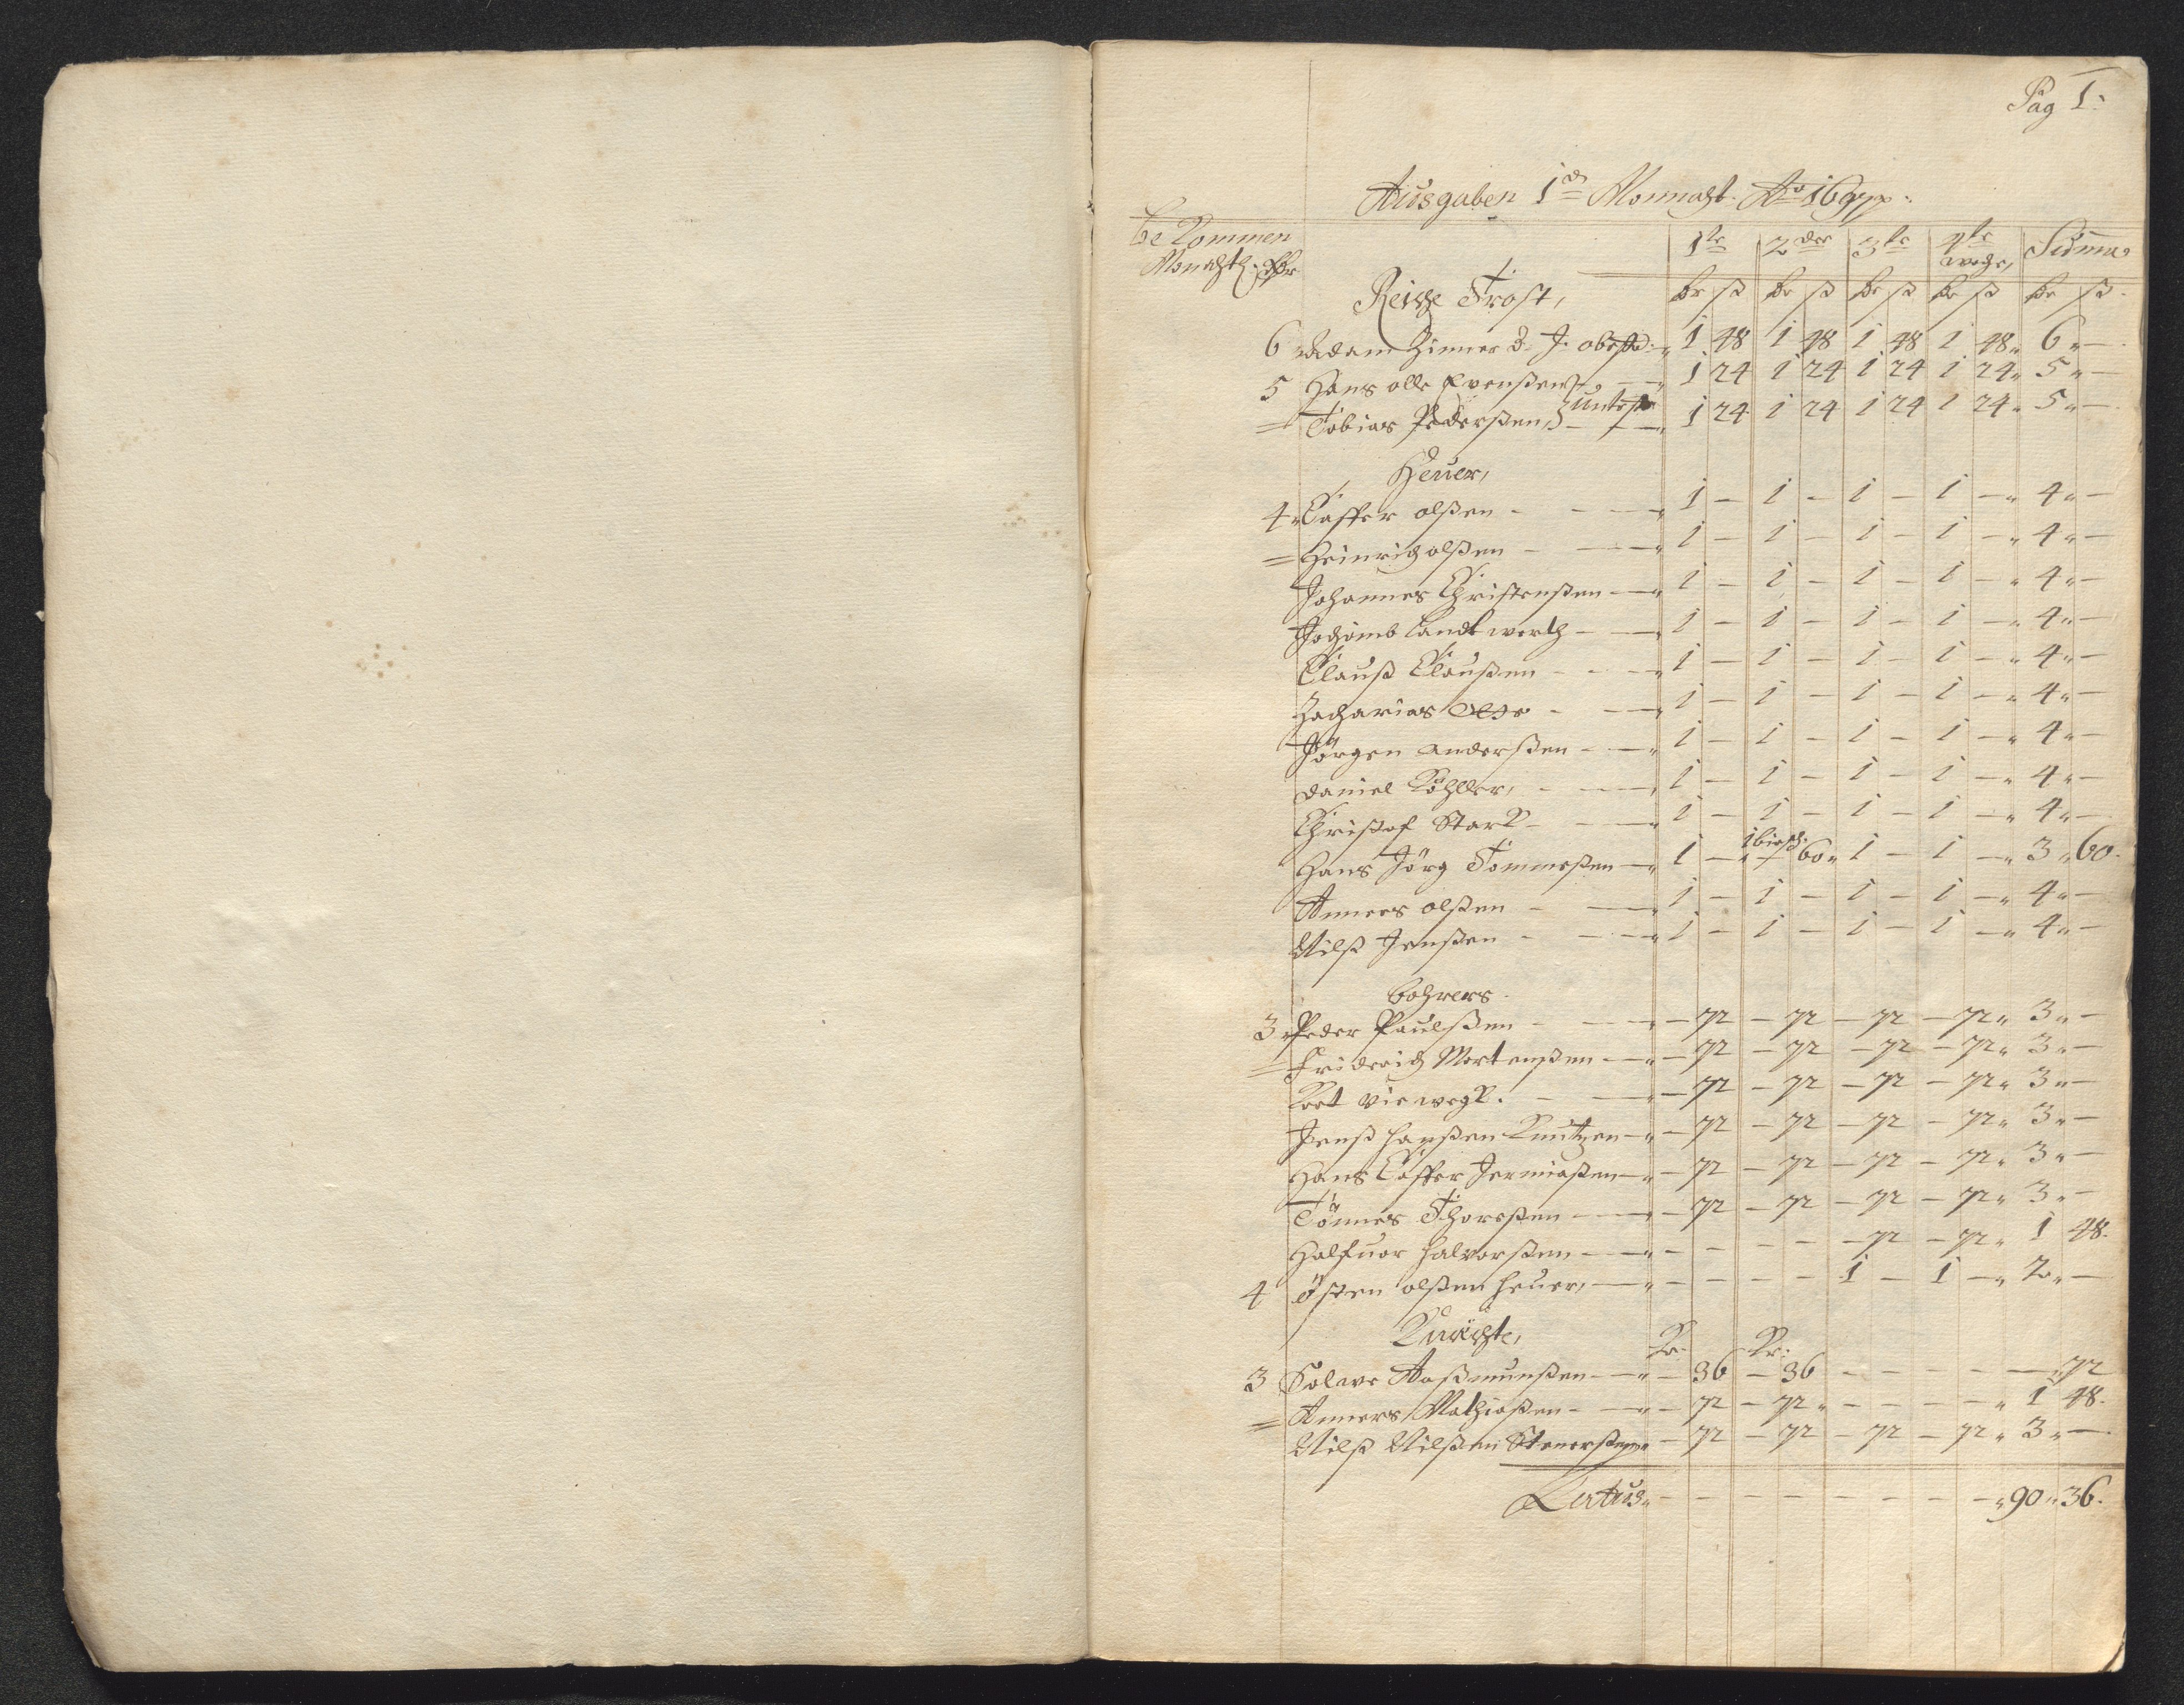 Pag 1.
Ausgaben 1 Monnaht. Ao 1699.
be Kommen
Monahtl.
1te 2der 3te 4te woche, Summa
Reiche Trost,
6 Adam Zimmer 1 48 1 48 1 48 1 48 " 6 " —
5 Hans olle Evenßen 1 24 1 24 1 24 1 24 " 5 " —
= Tobias Pederßen, 1 24 1 24 1 24 1 24 " 5 " —
Heuer,
4 " Casper olßen - - — " 1 — 1 — 1 — 1 — " 4 " —
= Heinrich olßen - — " 1 — 1 — 1 — 1 — " 4 " —
Johannes Christenßen — " 1 — 1 — 1 — 1 — " 4 " —
Jochimb Landtwerth - — " 1 — 1 — 1 — 1 — " 4 " —
Clauß Claußen - - — " 1 — 1 — 1 — 1 — " 4 " —
Zacharias - — " 1 — 1 — 1 — 1 — " 4 " —
Jörgen anderßen - — " 1 — 1 — 1 — 1 — " 4 " —
Daniel Köhller, - — " 1 — 1 — 1 — 1 — " 4 " —
Christof Stark - - — " 1 — 1 — 1 — 1 — " 4 " —
Hans Jörg Tommeßen — " 1 — " — 60 " 1 — 1 — " 3 " 60.
Anners olßen - — " 1 — 1 — 1 — 1 — " 4 " —
Nilß Jenßen - - — " 1 — 1 — 1 — 1 — " 4 " —
bohrers.
3 " Peder Paulßen - — " — 72 — 72 — 72 — 72 " 3 " —
= Friderich Mortenßen — " — 72 — 72 — 72 — 72 " 3 " —
Kort Viewegk. - — " — 72 — 72 — 72 — 72 " 3 " —
Jenß Hanßen Knutzen — " — 72 — 72 — 72 — 72 " 3 " —
Hans Casper Jermiaßen — " — 72 — 72 — 72 — 72 " 3 " —
Tönnes Thoreßen — " — 72 — 72 — 72 — 72 " 3 " —
Halfuor Halvorßen — " — — — — — 72 — 72 " 1 48.
4 östen olßen heuer, — " — — — — 1 — 1 — " 2 " —
Knechte,
Kr. Kr.
3 Solwe Aaßmunßen — " — 36 — 36 — — — — — " 72
= Anners Mathiaßen — " — 72 — 72 " — — — — " 1 48.
Nilß Nilßen Stenerßen " — 72 — 72 — 72 — 72 " 3 " —
Latus " — — — — — — — — " 90 " 36.